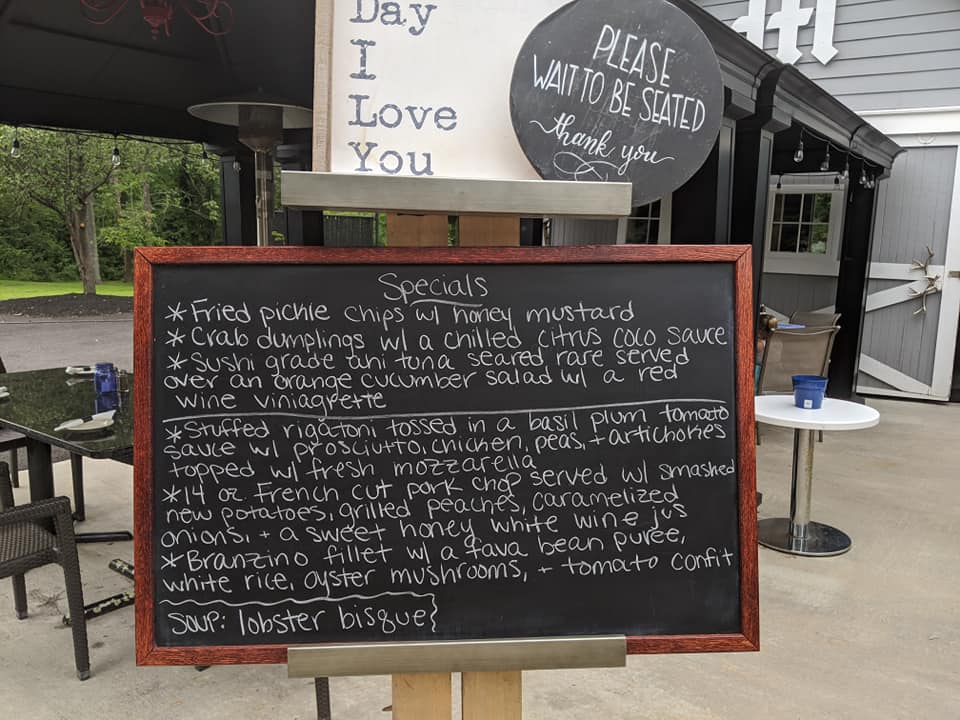 Day
I
Love
You
PLEASE
WAIT TO BE SEATED
thank you
Specials
* Fried pickle chips w/ honey mustard
* Crab dumplings w/ a chilled citrus coco sauce
* Sushi grade ahi tuna seared rare served
over an orange cucumber salad w/ a red
wine viniagrette
* Stuffed rigatoni tossed in a basil plum tomato
sauce w/ prosciutto, chicken, peas, + artichokes
topped w/ fresh mozzarella
* 14 oz. French cut pork chop served w/ smashed
new potatoes, grilled peaches, caramelized
onions, + a sweet honey white wine jus
* Branzino fillet w/ a fava bean puree,
white rice, oyster mushrooms, + tomato confit
soup: lobster bisque